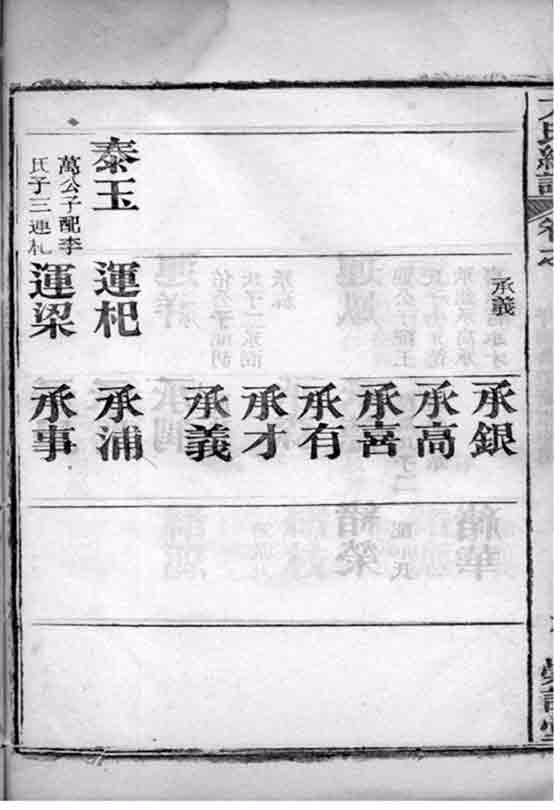 泰玉
萬公子配李
氏子三連札
承義
運杞
運梁
承銀
承高
承喜
承有
承才
承義
承浦
承事